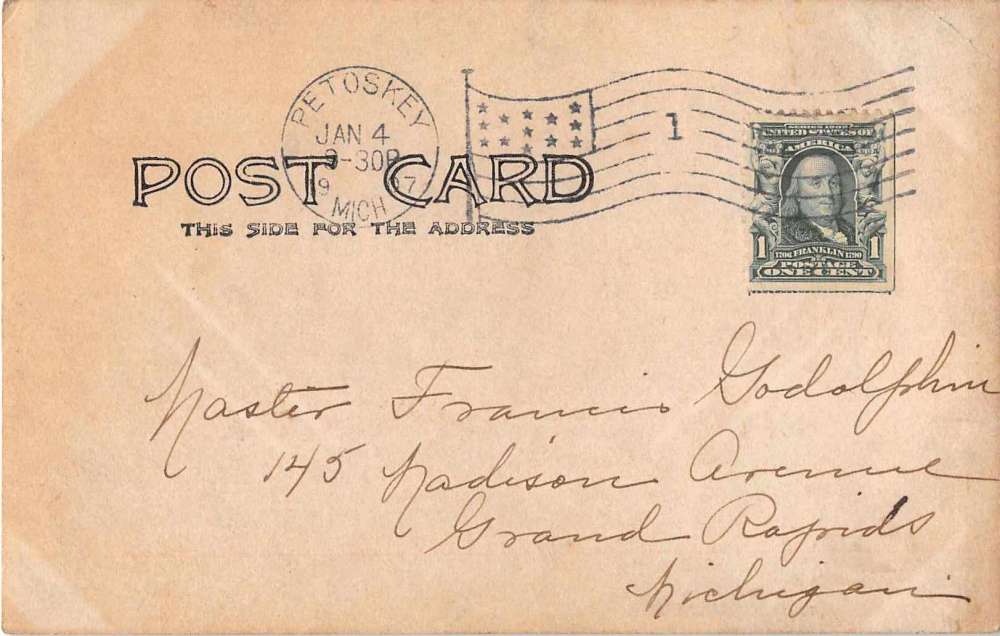 PETOSKEY
JAN 4
-30P
19 07
MICH
1
SERIES 1902
UNITED STATES OF
AMERICA
1 1
1706 FRANKLIN 1790
POSTAGE
ONE CENT
POST CARD
THIS SIDE FOR THE ADDRESS
Master Francis Godolphin
145 Madison Avenue
Grand Rapids
Michigan.